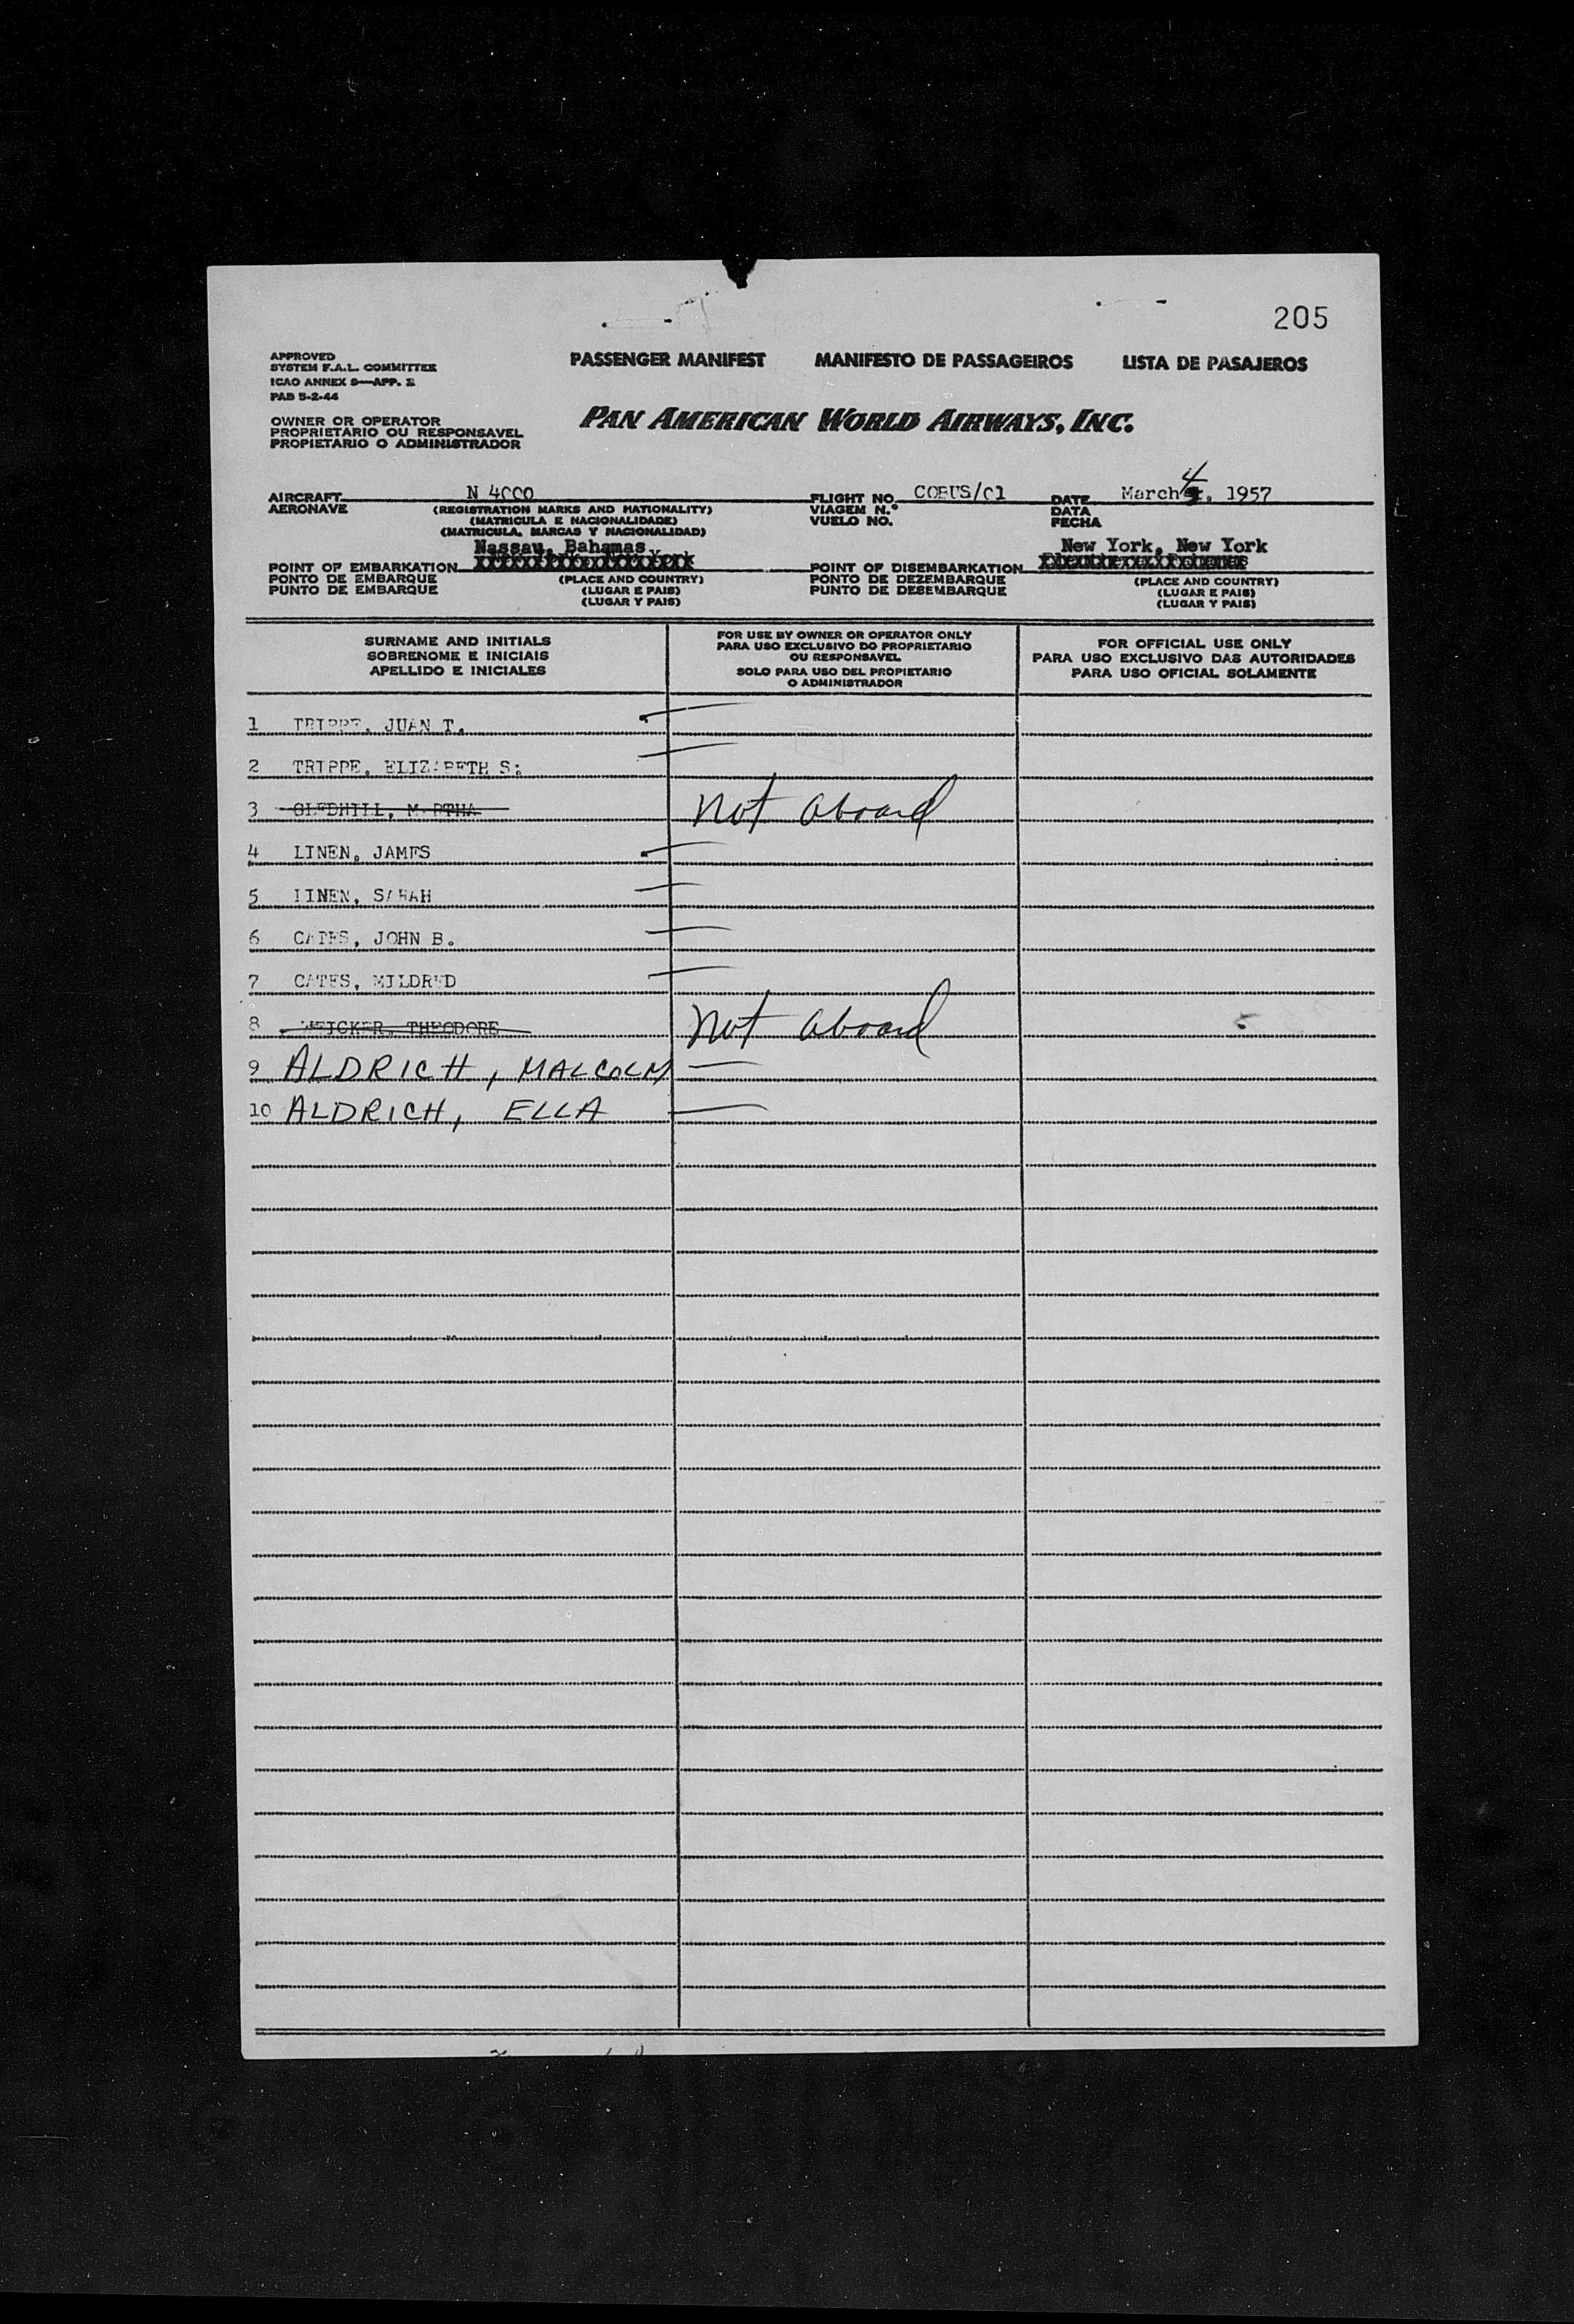 205
APPROVED
SYSTEM F.A.L. COMMITTEE
ICAO ANNEX 9—APP. 2
PAB 5-2-44
PASSENGER MANIFEST MANIFESTO DE PASSAGEIROS LISTA DE PASAJEROS
OWNER OR OPERATOR
PROPRIETARIO OU RESPONSAVEL
PROPIETARIO O ADMINISTRADOR
PAN AMERICAN WORLD AIRWAYS, INC.
AIRCRAFT N 4000 FLIGHT NO. COBUS/01 DATE March 4, 1957
AERONAVE (REGISTRATION MARKS AND NATIONALITY) VIAGEM N.° DATA
(MATRICULA E NACIONALIDADE) VUELO NO. FECHA
(MATRICULA, MARCAS Y NACIONALIDAD)
Nassau, Bahamas New York, New York
POINT OF EMBARKATION POINT OF DISEMBARKATION
PONTO DE EMBARQUE (PLACE AND COUNTRY) PONTO DE DEZEMBARQUE (PLACE AND COUNTRY)
PUNTO DE EMBARQUE (LUGAR E PAIS) PUNTO DE DESEMBARQUE (LUGAR E PAIS)
(LUGAR Y PAIS) (LUGAR Y PAIS)
SURNAME AND INITIALS
SOBRENOME E INICIAIS
APELLIDO E INICIALES
FOR USE BY OWNER OR OPERATOR ONLY
PARA USO EXCLUSIVO DO PROPRIETARIO
OU RESPONSAVEL
SOLO PARA USO DEL PROPIETARIO
O ADMINISTRADOR
FOR OFFICIAL USE ONLY
PARA USO EXCLUSIVO DAS AUTORIDADES
PARA USO OFICIAL SOLAMENTE
1 TRIPPE, JUAN T.
2 TRIPPE, ELIZABETH S:
3 GLEDHILL, MARTHA Not aboard
4 LINEN, JAMES
5 LINEN, SARAH
6 CATES, JOHN B.
7 CATES, MILDRED
8 WEICKER, THEODORE Not aboard
9 ALDRICH, MALCOLM
10 ALDRICH, ELLA